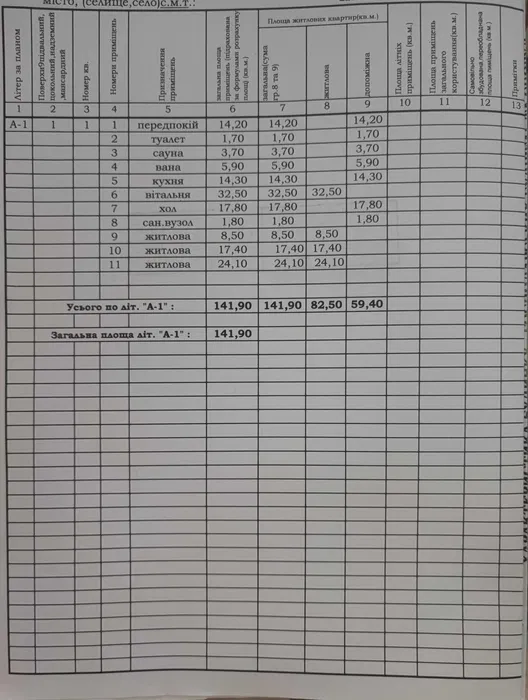 місто, (селище,село)с.м.т.:
Літер за планом
Поверхи(підвальний, цокольний,надземний ,мансардний
Номер кв.
Номери приміщень
Призначення приміщень
загальна площа приміщень (підрахована за формулами розрахунку площ) (кв.м.)
Площа житлових квартир(кв.м.)
загальна(сума гр.8 та 9)
житлова
допоміжна
Площа літніх приміщень (кв.м.)
Площа приміщень загального користування(кв.м.)
Самовільно збудована,переобладнана площа приміщень (кв.м.)
Примітки
1 2 3 4 5 6 7 8 9 10 11 12 13
А-1 1 1 1 передпокій 14,20 14,20 14,20
2 туалет 1,70 1,70 1,70
3 сауна 3,70 3,70 3,70
4 вана 5,90 5,90 5,90
5 кухня 14,30 14,30 14,30
6 вітальня 32,50 32,50 32,50
7 хол 17,80 17,80 17,80
8 сан.вузол 1,80 1,80 1,80
9 житлова 8,50 8,50 8,50
10 житлова 17,40 17,40 17,40
11 житлова 24,10 24,10 24,10
Усього по літ. "А-1" : 141,90 141,90 82,50 59,40
Загальна площа літ. "А-1" : 141,90